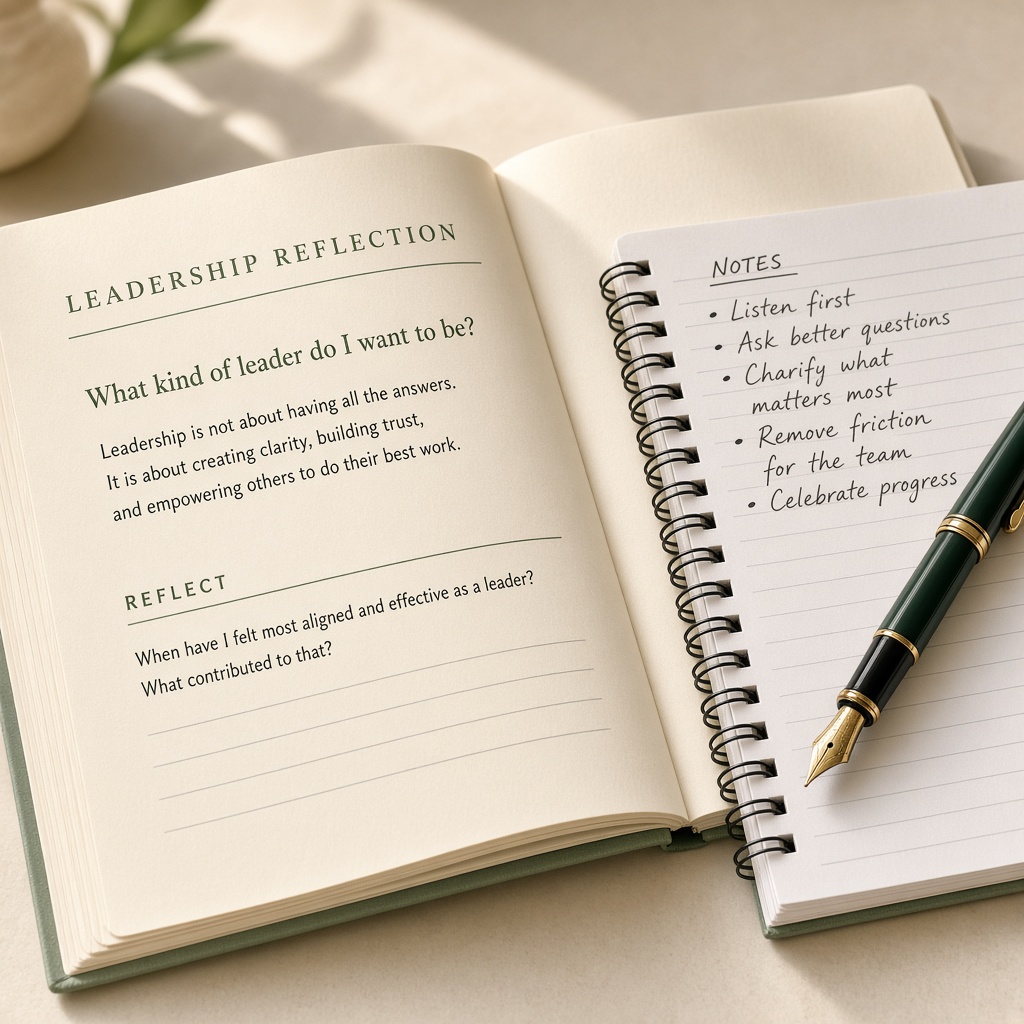 LEADERSHIP REFLECTION
What kind of leader do I want to be?
Leadership is not about having all the answers.
It is about creating clarity, building trust,
and empowering others to do their best work.
REFLECT
When have I felt most aligned and effective as a leader?
What contributed to that?
NOTES
• Listen first
• Ask better questions
• Charify what
matters most
• Remove friction
for the team
• Celebrate progress